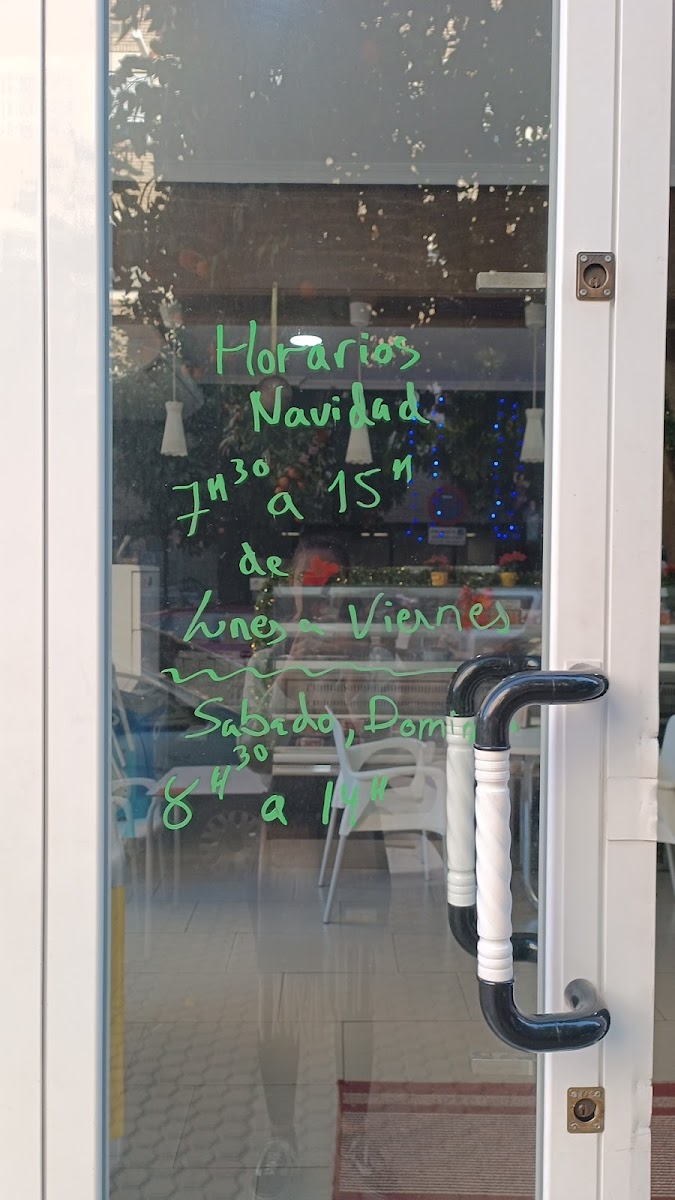 Horarios
Navidad
7H30 a 15H
de
Lunes a Viernes
Sabado,
8H30 a 14H